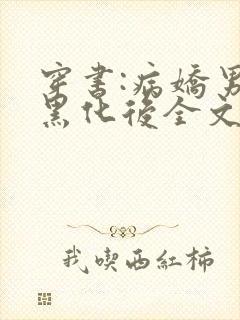 穿书:病嬌男
黑化後全文
我喫西紅柿